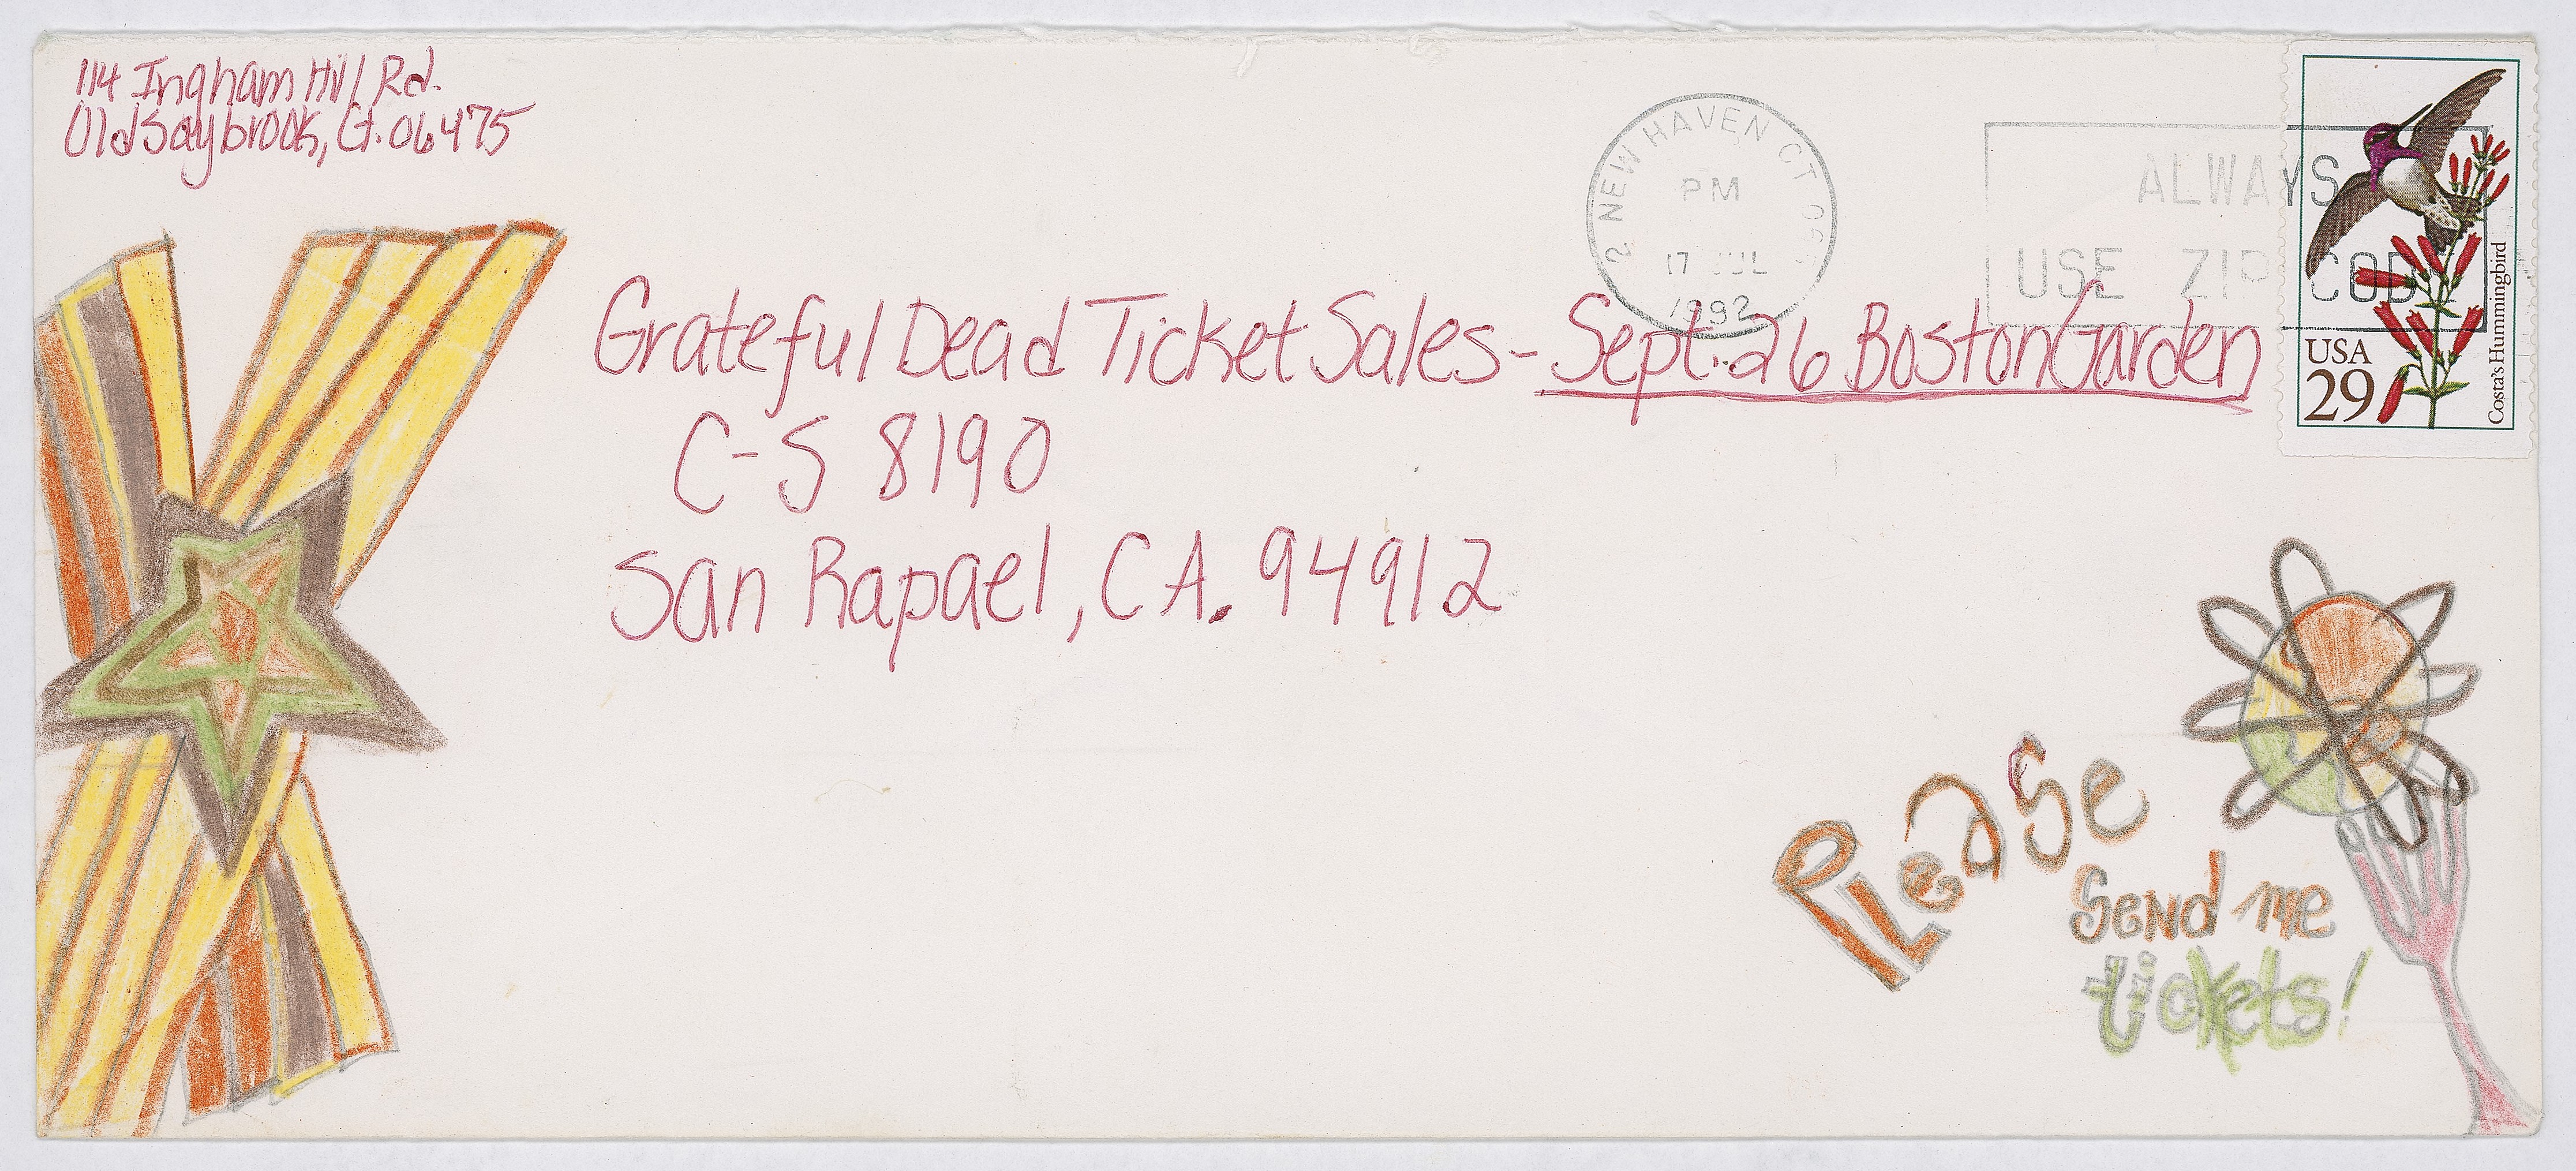 114 Ingham Hill Rd.
Old Saybrook, Ct. 06475
NEW HAVEN CT
PM
17 JUL
1992
ALWAYS
USE ZIP CODE
USA
29
Costa's Hummingbird
Grateful Dead Ticket Sales - Sept. 26 Boston Garden
C-S 8190
San Rapael, CA. 94912
Please
Send me
tickets!